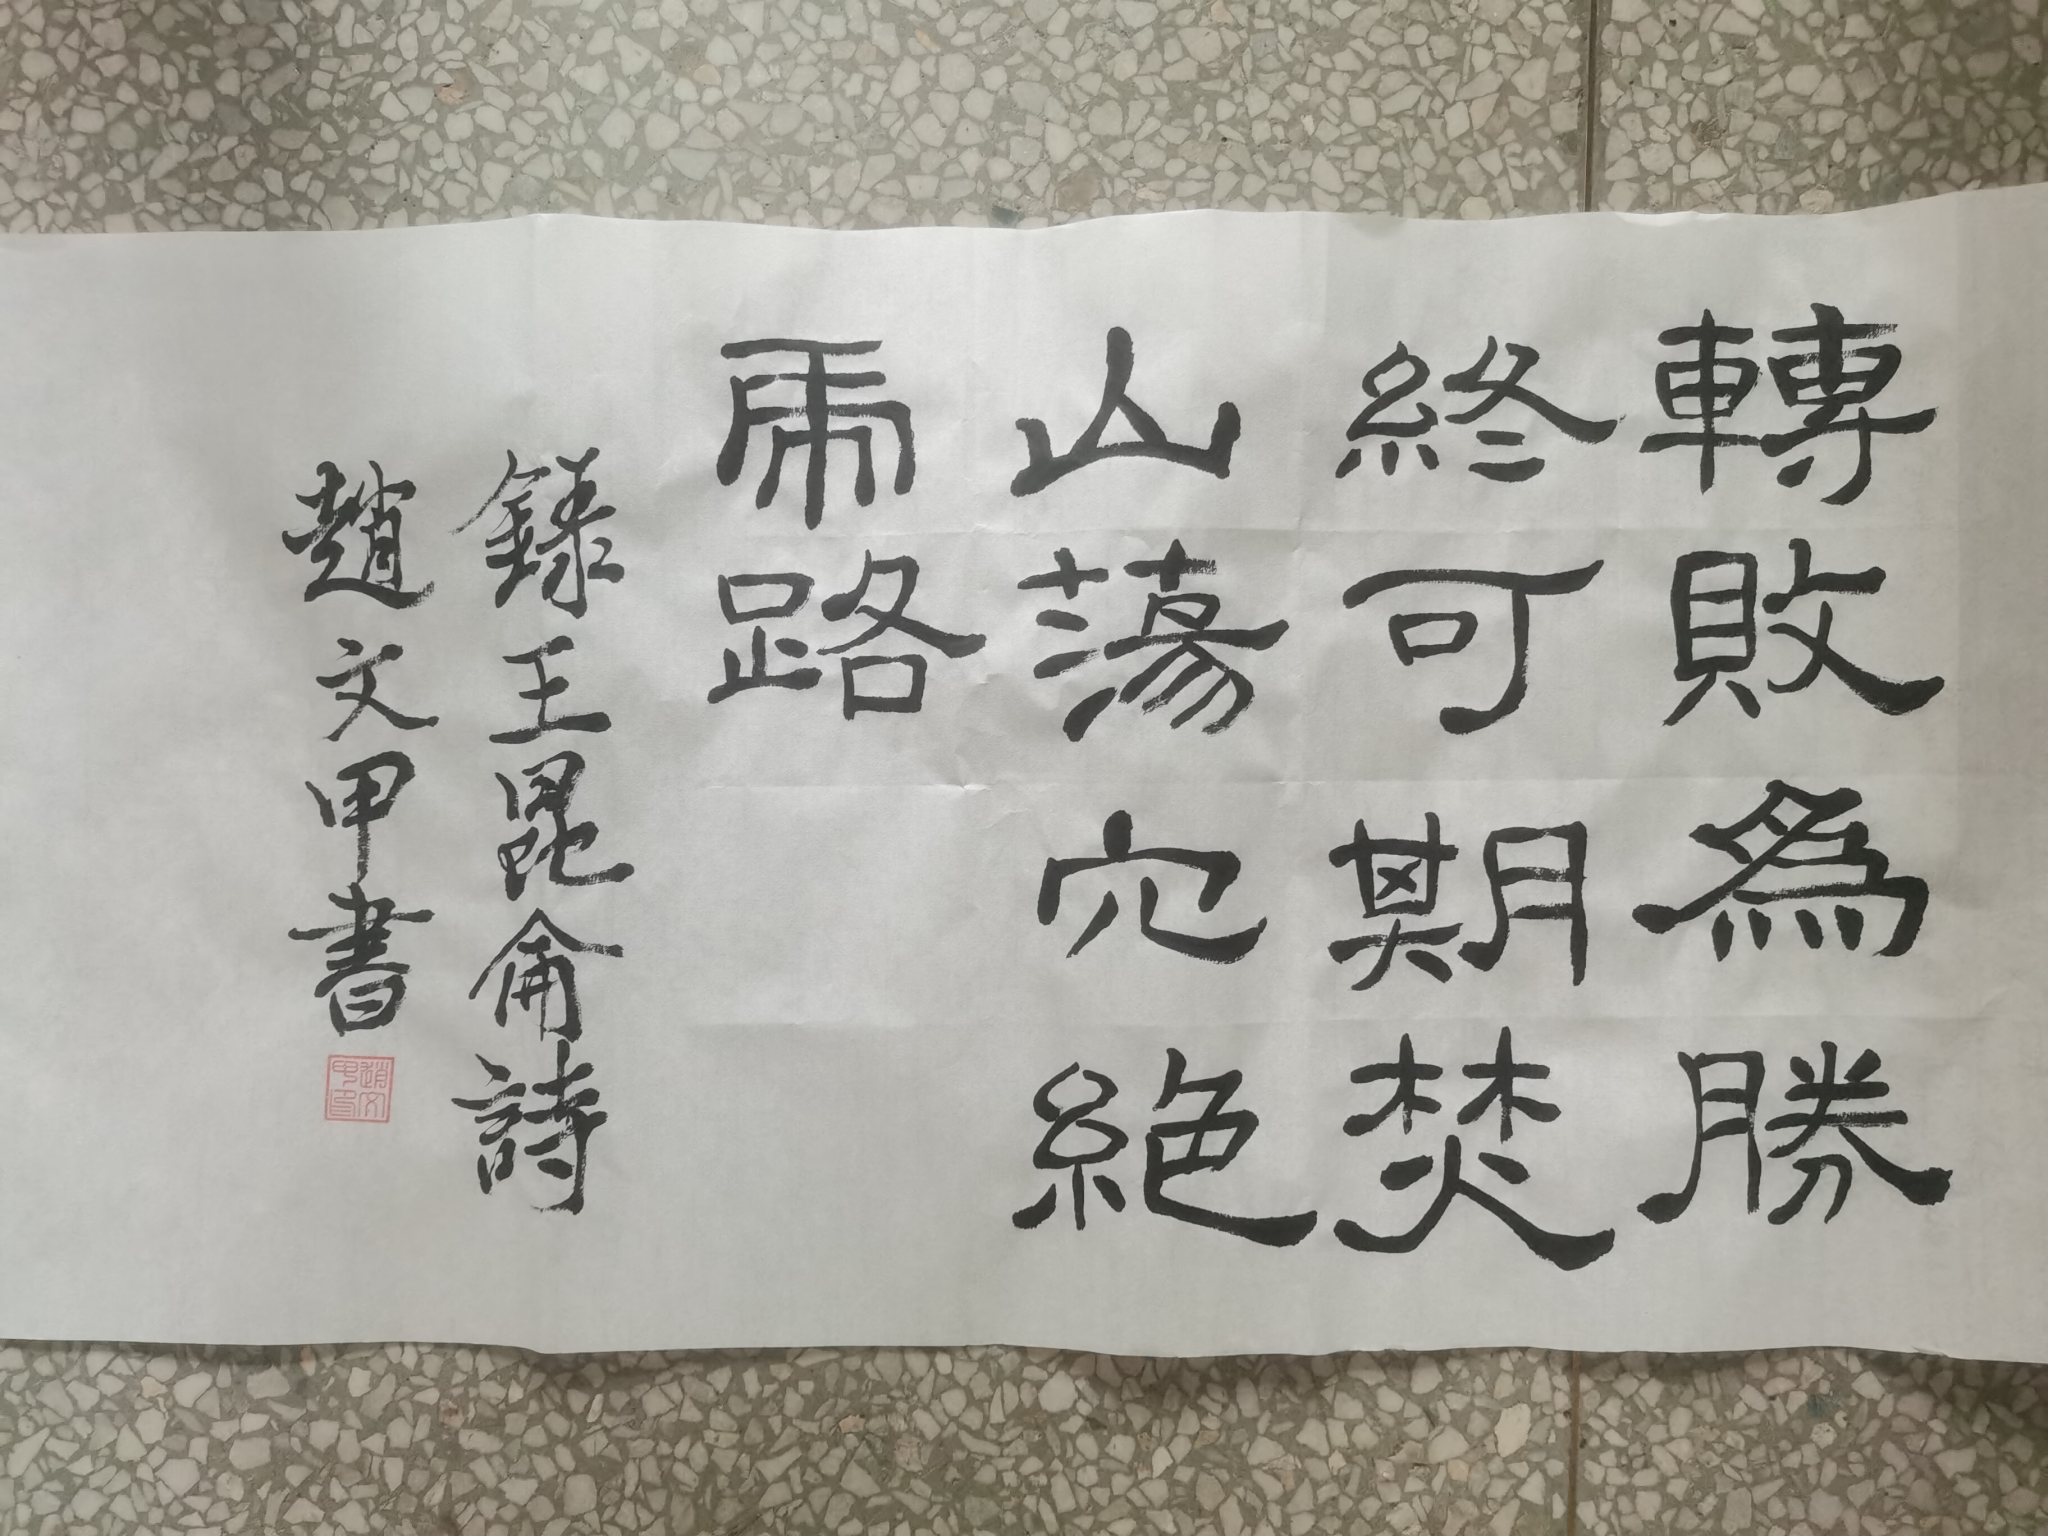 轉敗為勝
終可期焚
山蕩穴絶
虎路
錄王昆侖詩
趙文甲書
趙文甲印